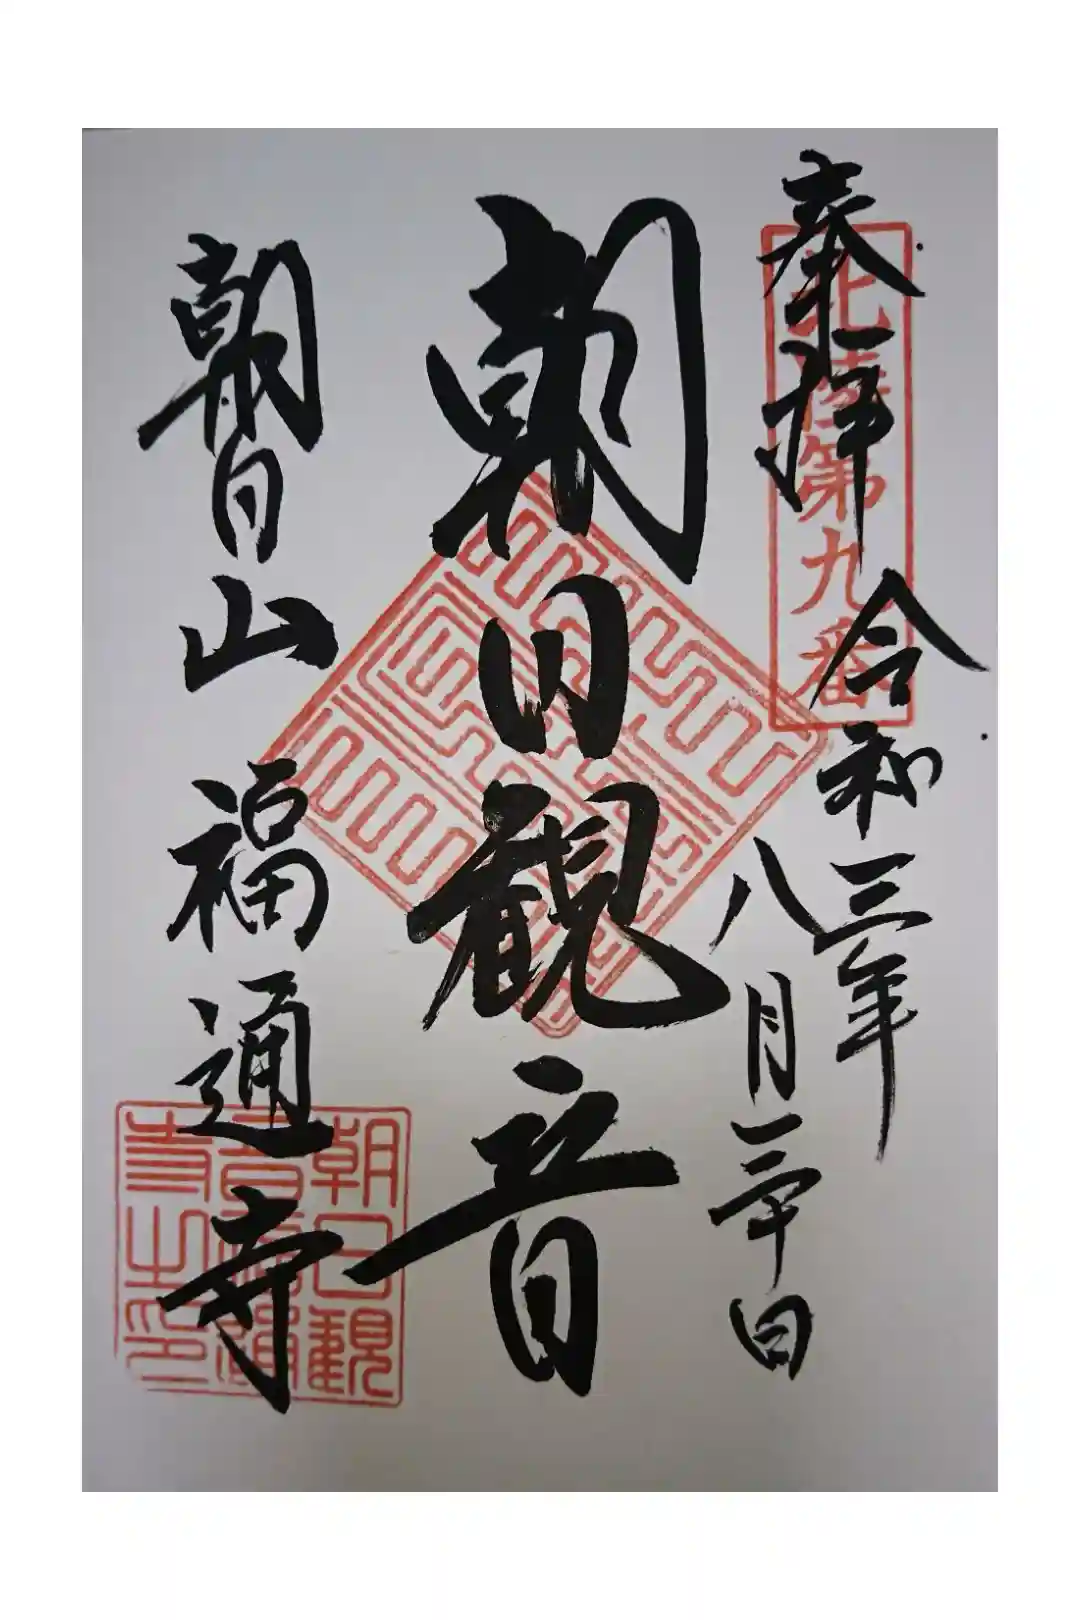 奉拝
北陸第九番
令和三年
八月二十日
朝日観音
朝日山福通寺
朝日観
音福通
寺之印